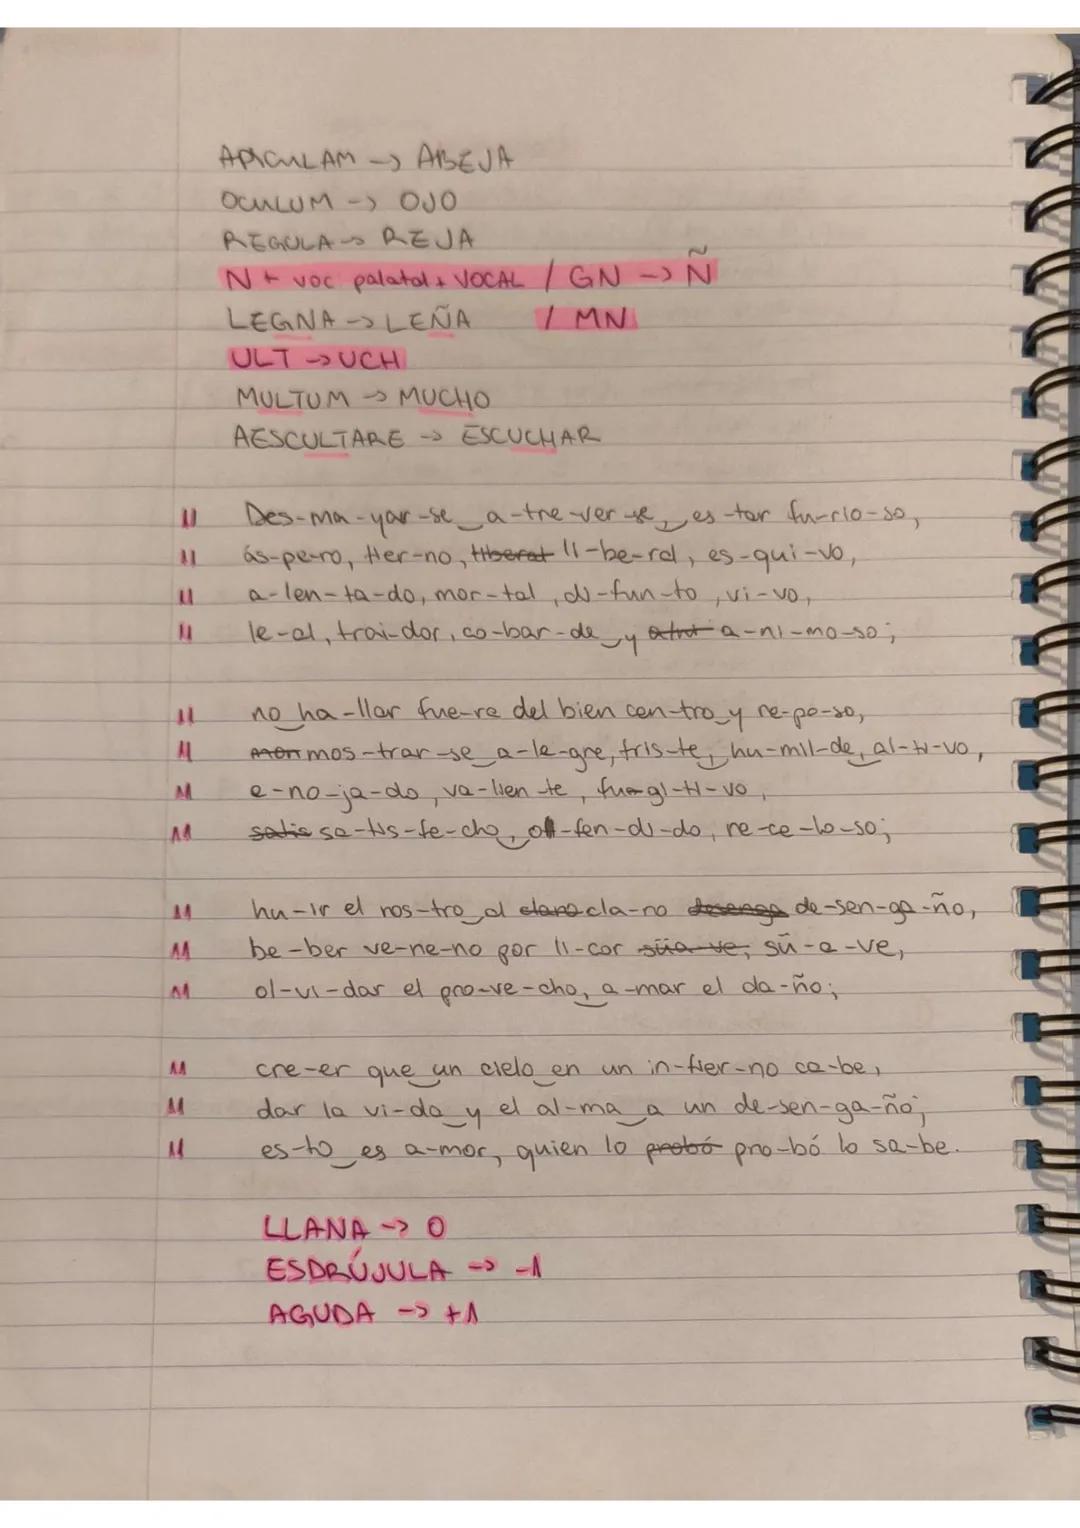 APICULAM -> ABEJA
OCULUM -> OJO
REGULA -> REJA
N + voc palatal + VOCAL / GN -> Ñ
LEGNA -> LEÑA / MN
ULT -> UCH
MULTUM -> MUCHO
AESCULTARE -> ESCUCHAR
11 Des-ma-yar-se_a-tre-ver-se,_es-tar fu-rio-so,
11 ás-pe-ro, tier-no, tiberat li-be-ral, es-qui-vo,
11 a-len-ta-do, mor-tal, di-fun-to, vi-vo,
11 le-al, trai-dor, co-bar-de_y a-ni-mo-so;
11 no_ha-llar fue-ra del bien cen-tro_y re-po-so,
11 mon mos-trar-se_a-le-gre, tris-te,_hu-mil-de,_al-ti-vo,
11 e-no-ja-do, va-lien-te, fu-gi-ti-vo,
11 satis sa-tis-fe-cho,_o-fen-di-do, re-ce-lo-so;
11 hu-ir el ros-tro_al clano cla-ro desenga de-sen-ga-ño,
11 be-ber ve-ne-no por li-cor süa-ve, sü-a-ve,
11 ol-vi-dar el pro-ve-cho,_a-mar el da-ño;
11 cre-er que_un cielo_en un in-fier-no ca-be,
11 dar la vi-da_y el al-ma_a un de-sen-ga-ño;
11 es-to_es a-mor, quien lo probó pro-bó lo sa-be.
LLANA -> 0
ESDRÚJULA -> -1
AGUDA -> +1